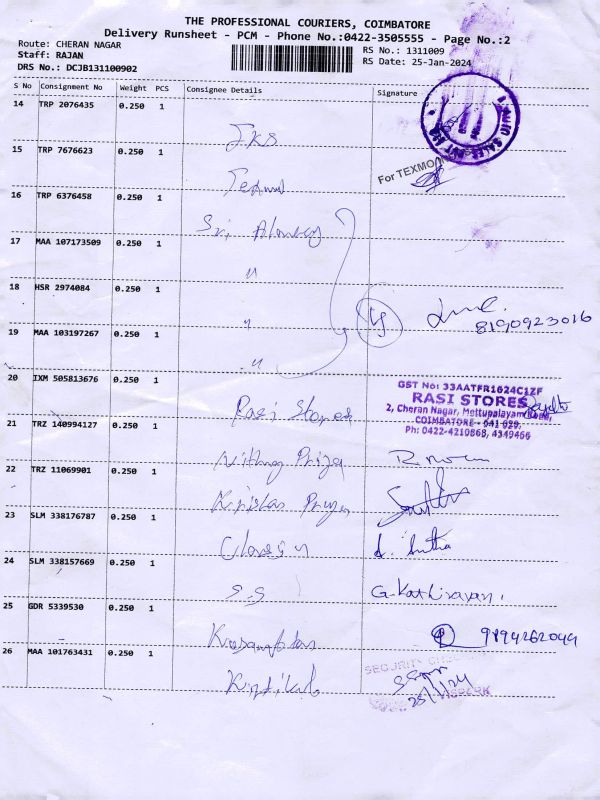 THE PROFESSIONAL COURIERS, COIMBATORE
Delivery Runsheet - PCM - Phone No.:0422-3505555 - Page No.:2
Route: CHERAN NAGAR
RS No.: 1311009
Staff: RAJAN
RS Date: 25-Jan-2024
DRS No.: DCJB131100902
S No Consignment No Weight PCS Consignee Details Signature
14 TRP 2076435 0.250 1
J.K.S
15 TRP 7676623 0.250 1
For TEXMO
16 TRP 6376458 0.250 1
Sri
17 MAA 107173509 0.250 1
"
18 HSR 2974084 0.250 1
" 8190923016
19 MAA 103197267 0.250 1
"
20 IXM 505813676 0.250 1
GST No: 33AATFR1624C1ZF
RASI STORES
2, Cheran Nagar, Mettupalayam Road,
COIMBATORE - 641 029.
Ph: 0422-4210868, 4349466
Rasi Stores
21 TRZ 140994127 0.250 1
Nithya Priya
22 TRZ 11069901 0.250 1
23 SLM 338176787 0.250 1
24 SLM 338157669 0.250 1
S.S G. Kathiravan.
25 GDR 5339530 0.250 1
9894262044
26 MAA 101763431 0.250 1
SECURITY
25/1/24